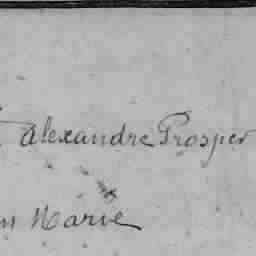 alexandre Prosper
Marie